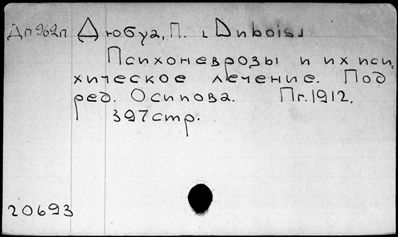 Дп962п Дюбуа, П. [Dubois]
Психоневрозы и их пси-
хическое лечение. Под
ред. Осипова. Пг. 1912.
397стр.
20693